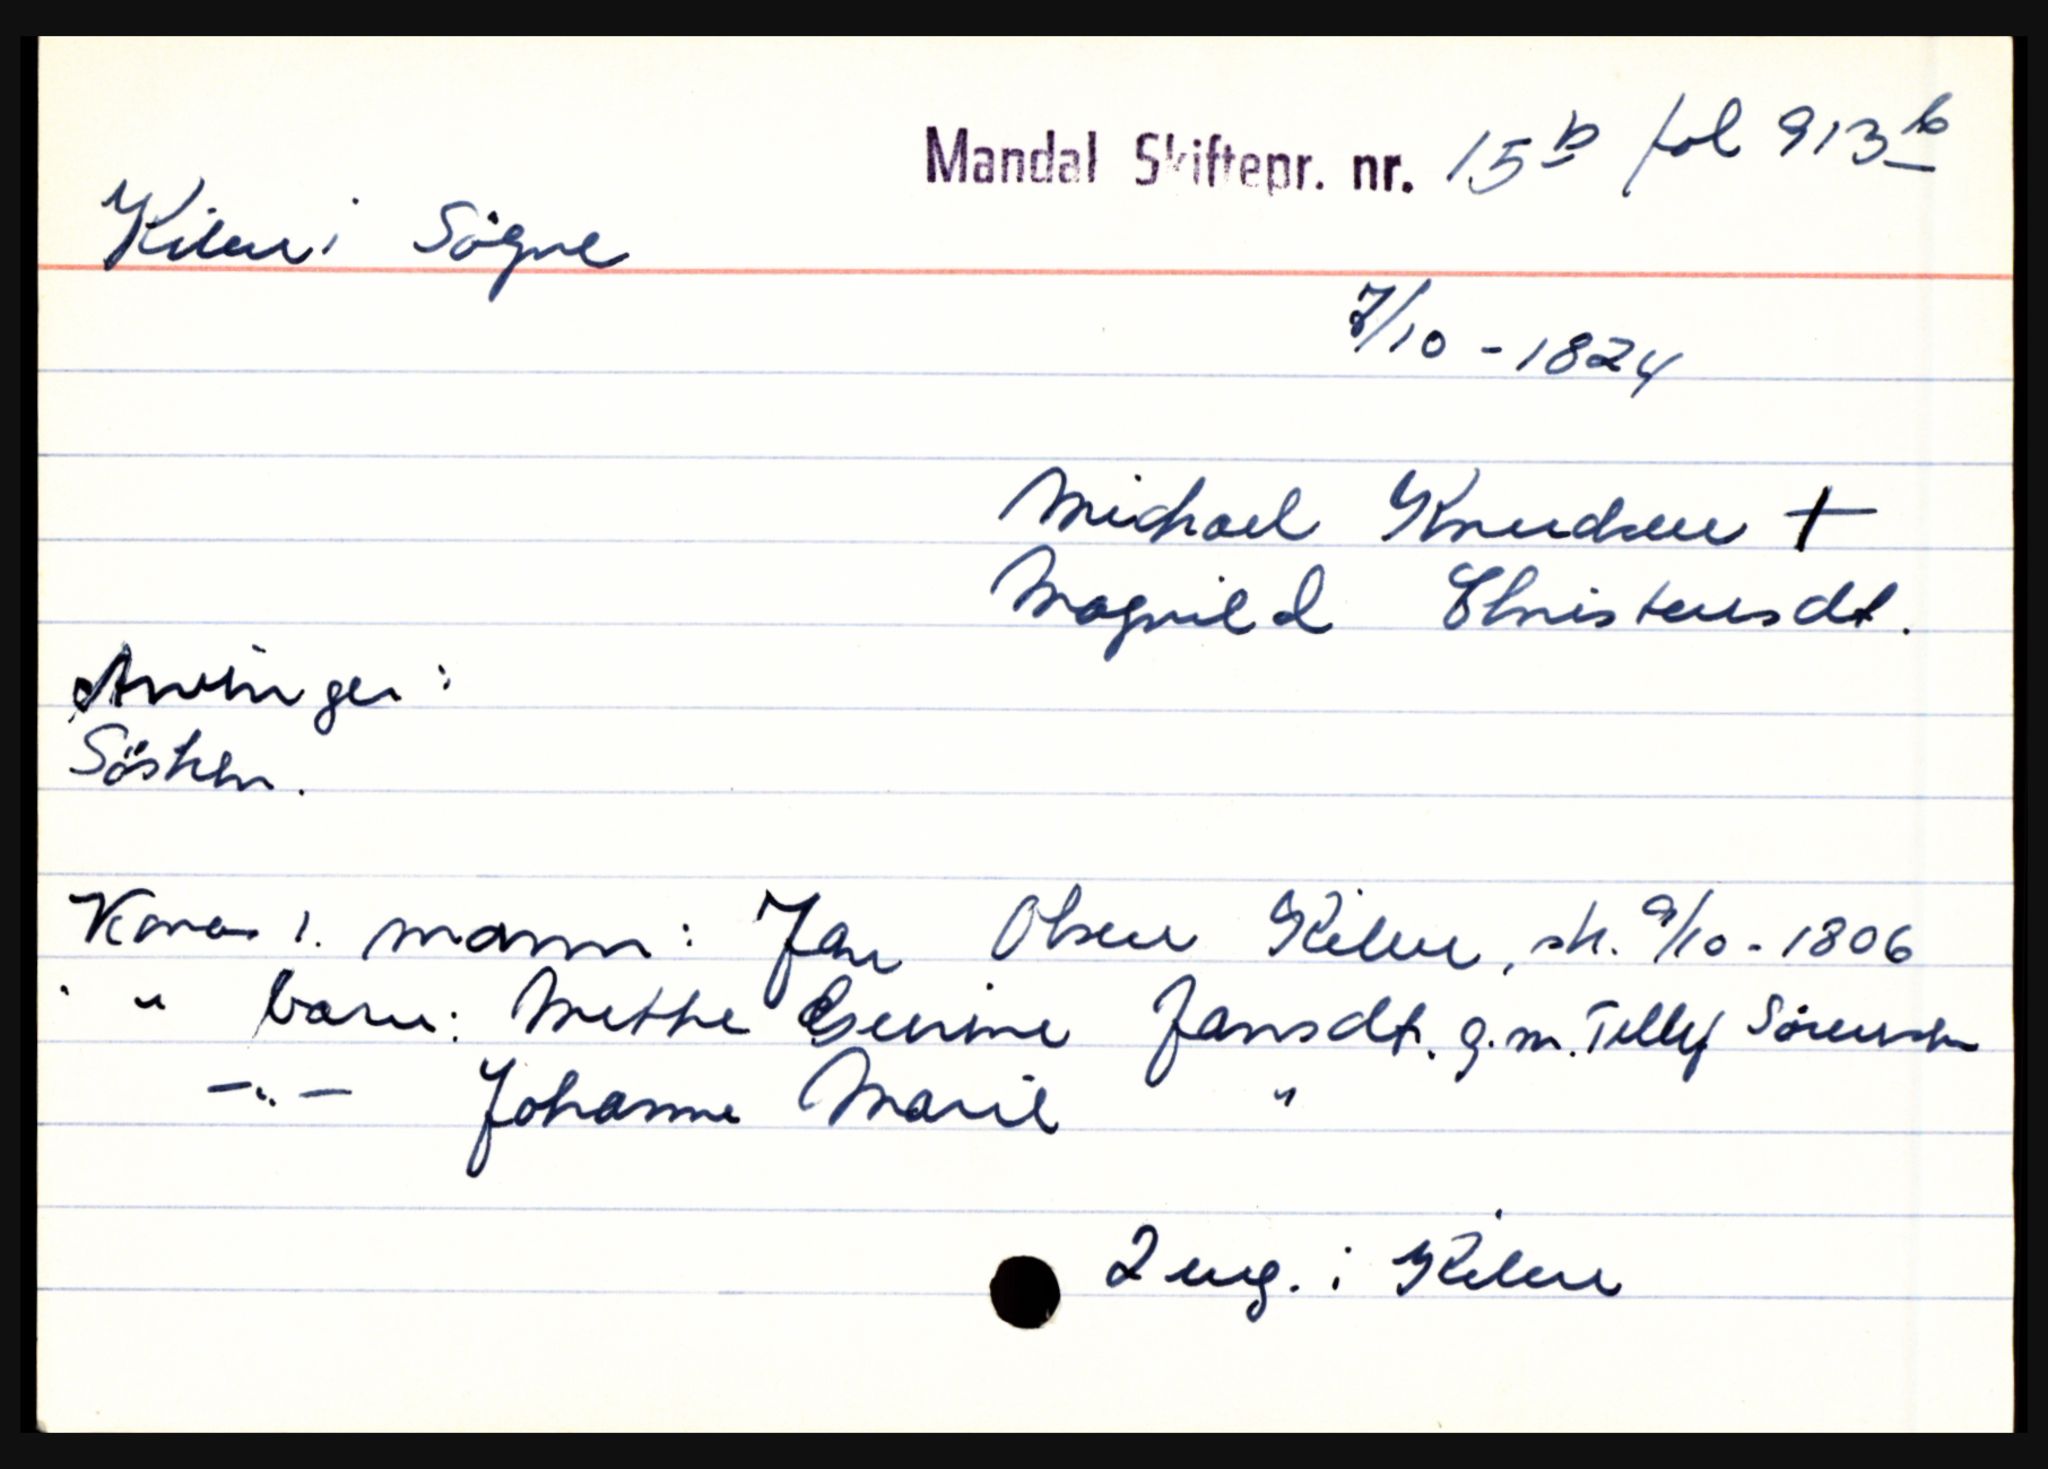 Mandal Skiftepr. nr. 15 b fol 913 b
Kilen i Sögne
7/10 - 1824
Michael Knudsen +
Magnild Christensdt.
Arvinger:
Sösken.
Konas 1. mann: Jan Olsen Kilen, sk. 9/10 - 1806
" " barn: Methe Gurine Jansdt. g.m. Tellef Sörensen
- " - Johanne Marie "
2 eng. i Kilen